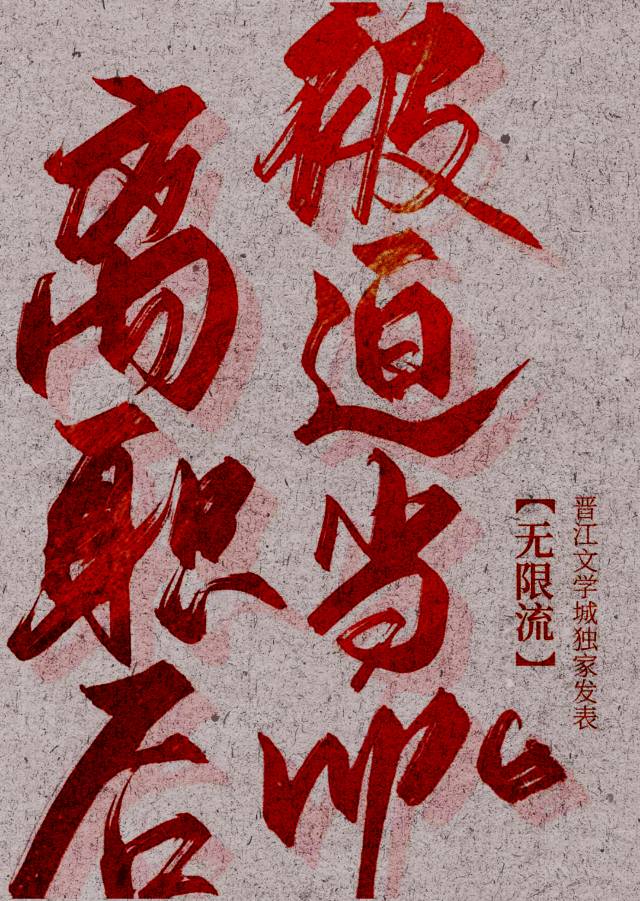 离职后
被迫当npc
【无限流】
晋江文学城独家发表